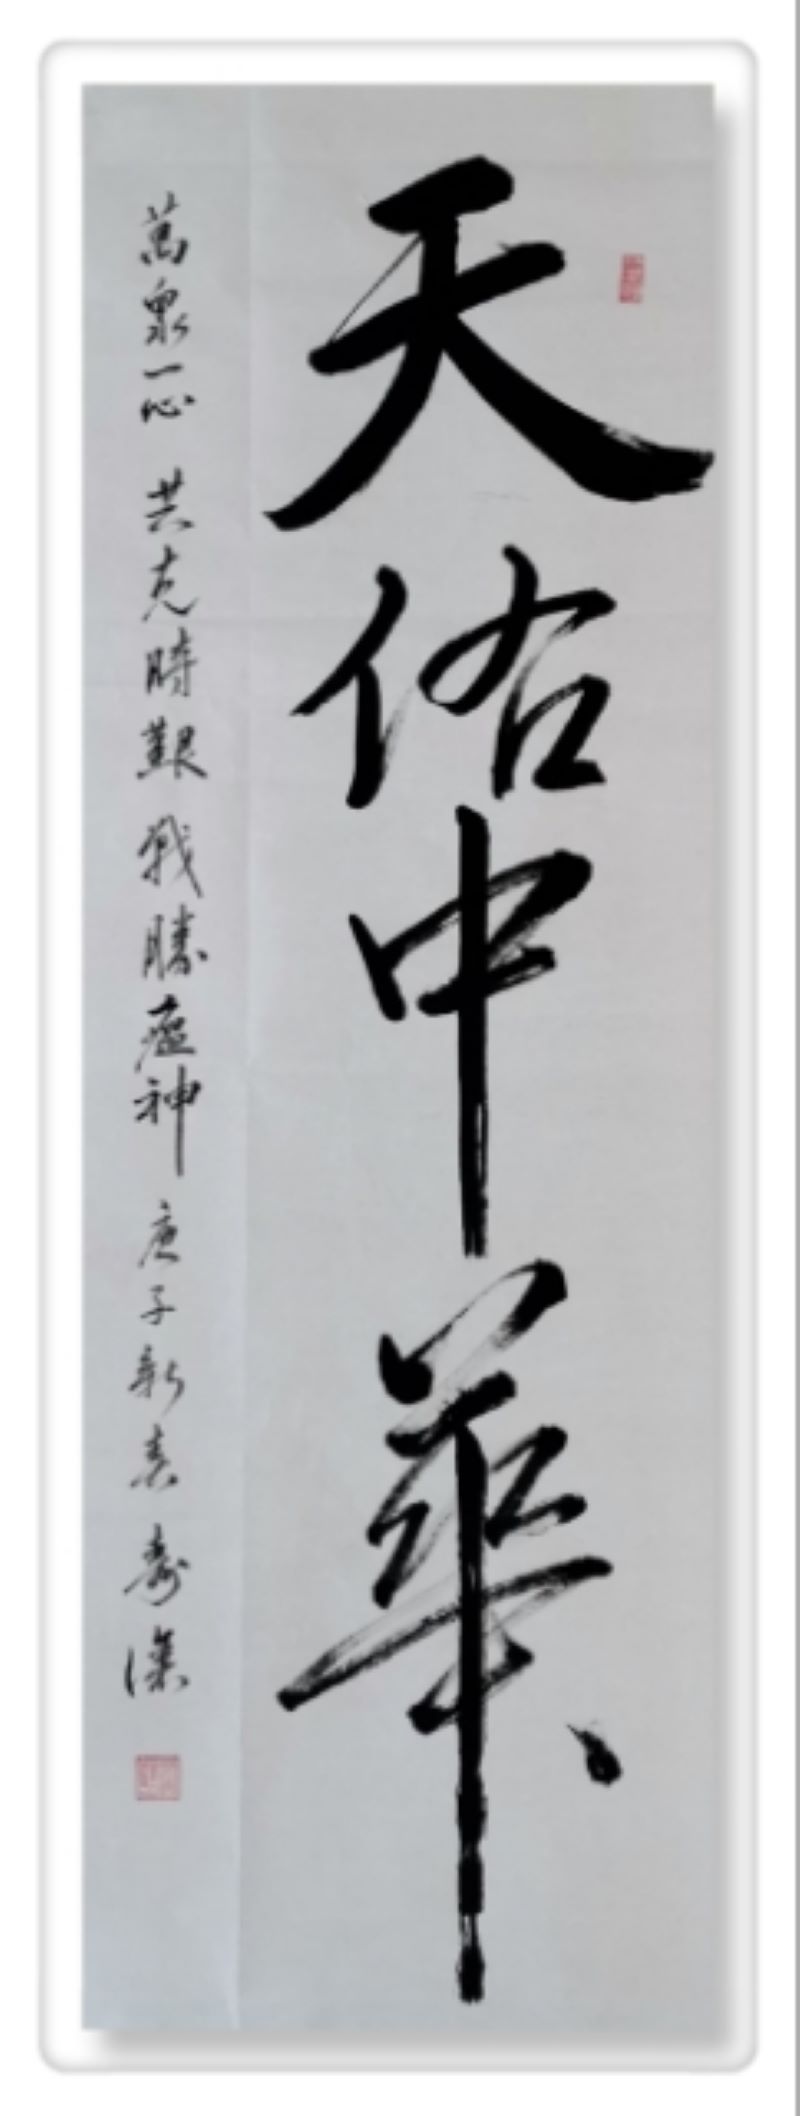 天佑中華
萬眾一心 共克時艱 戰勝瘟神 庚子新春 壽深